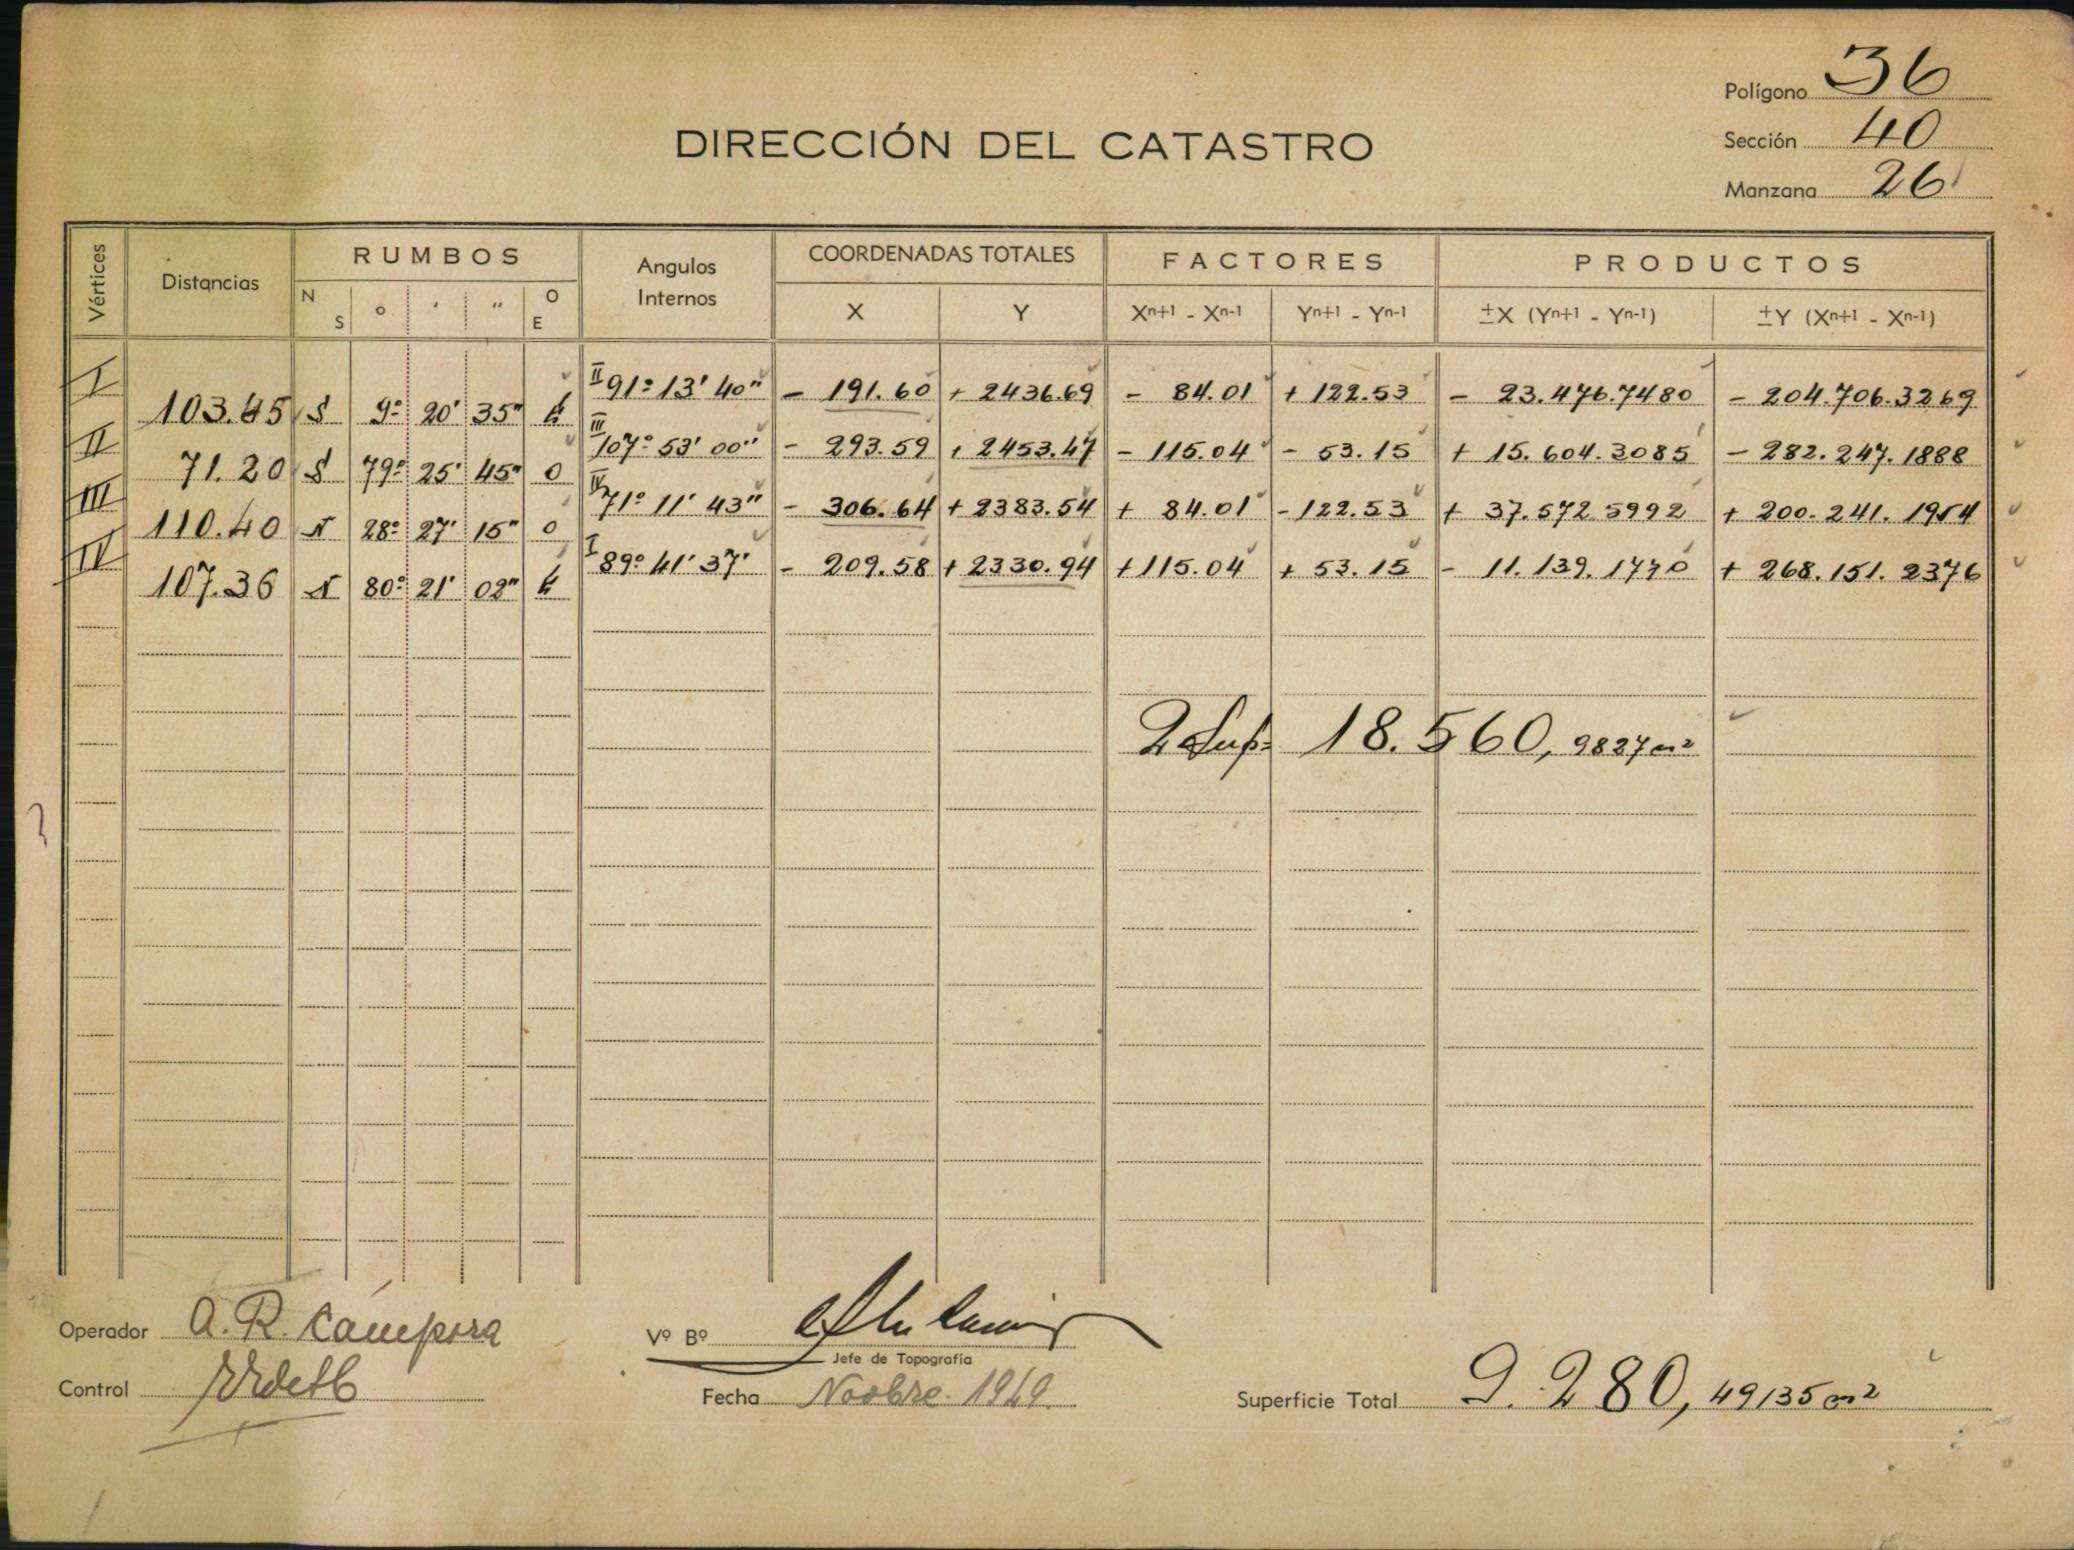 Polígono 36
DIRECCIÓN DEL CATASTRO
Sección 40
Manzana 26
Vértices Distancias RUMBOS Angulos Internos COORDENADAS TOTALES FACTORES PRODUCTOS
N S ° ' " O E X Y Xn+1 - Xn-1 Yn+1 - Yn-1 ±X (Yn+1 - Yn-1) ±Y (Xn+1 - Xn-1)
I II 91° 13' 40" - 191.60 + 2436.69 - 84.01 + 122.53 - 23.476.7480 - 204.706.3269
103.45 S 9° 20' 35" E
II III 107° 53' 00" - 293.59 + 2453.47 - 115.04 - 53.15 + 15.604.3085 - 282.247.1888
71.20 S 79° 25' 45" O
III IV 71° 11' 43" - 306.64 + 2383.54 + 84.01 - 122.53 + 37.572.5992 + 200.241.1954
110.40 N 28° 27' 15" O
IV I 89° 41' 37" - 209.58 + 2330.94 + 115.04 + 53.15 - 11.139.1770 + 268.151.2376
107.36 N 80° 21' 02" E
2 Sup= 18.560,9827 m²
Operador A. R. Cámpora
Vº Bº
Jefe de Topografía
Control
Fecha Novbre. 1949.
Superficie Total 9.280,49135 m²